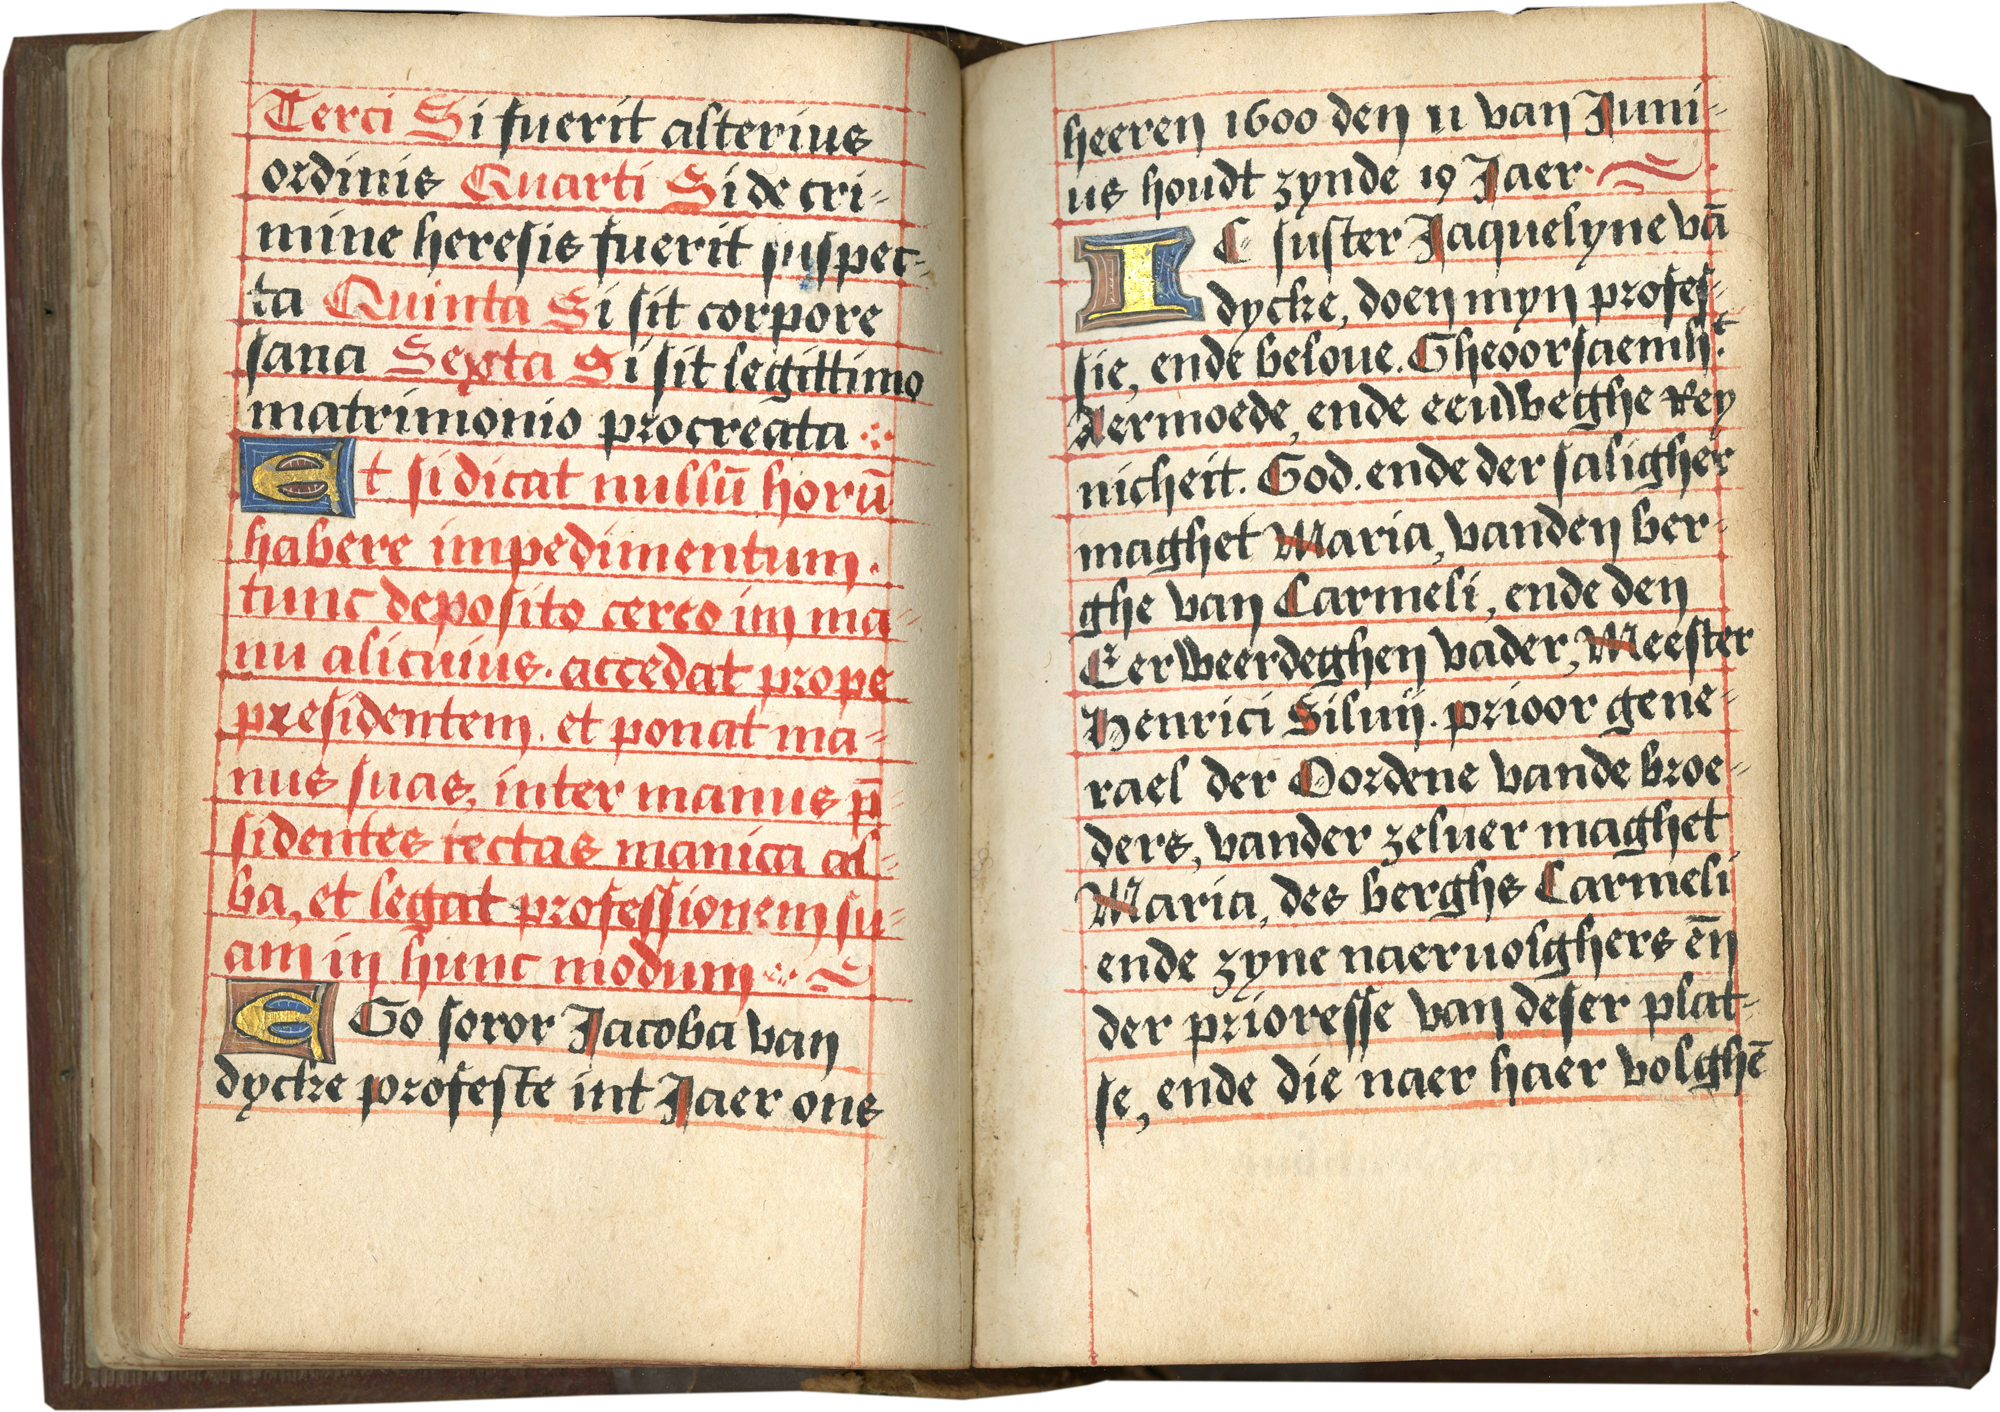 Terci Si fuerit alterius
ordinis Quarti Si de cri-
mine heresis fuerit suspec-
ta Quinta Si sit corpore
sana Sexta Si sit legittimo
matrimonio procreata
Et si dicat nullū horū
habere impedimentum.
tunc deposito cereo im ma-
nu alicuius. accedat prope
presidentem. et ponat ma-
nus suas, inter manus p̄-
sidentes tectas manica al-
ba, et legat professionem su-
am in hunc modum
EGo soror Jacoba van
dycke professte int Jaer ons
heeren 1600 den 11 van Juni-
us houdt zynde 19 Jaer
IC suster Jaquelyne vā
dycke, doen myn profes-
sie, ende beloue. Gheoorsaemht.
Aermoede, ende eeuweghe Rey
nicheit. God. ende der saligher
maghet Maria, vanden ber-
ghe van Carmeli, ende den
Eerweerdeghen vader, Meester
Henrici Siluij. prioor gene-
rael der Oordene vande broe-
ders, vander zeluer maghet
Maria, des berghs Carmeli
ende zyne naeruolghers eñ
der prioresse van deser plat-
se, ende die naer haer volghē